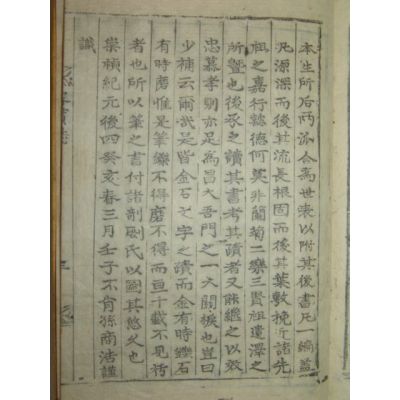 本生所后両派合為世表以附其後書凡一編蓋
凡源深而後其流長根固而後其葉敷挽近諸先
祖之嘉行懿德何莫非蘭菊二樂三賢祖遺澤之
所曁也後承之讀其書考其蹟者又能繼之以效
忠慕孝則亦足為昌大吾門之一大關棙也豈曰
少補云爾哉是皆金石之字之蹟而金有時鑠石
有時磨惟是筆鑠不得磨不得而亘千載不見朽
者也所以筆之書付諸剞劂氏以圖其悠久也
崇禎紀元後四癸亥春三月壬子不肖孫商浩謹
識